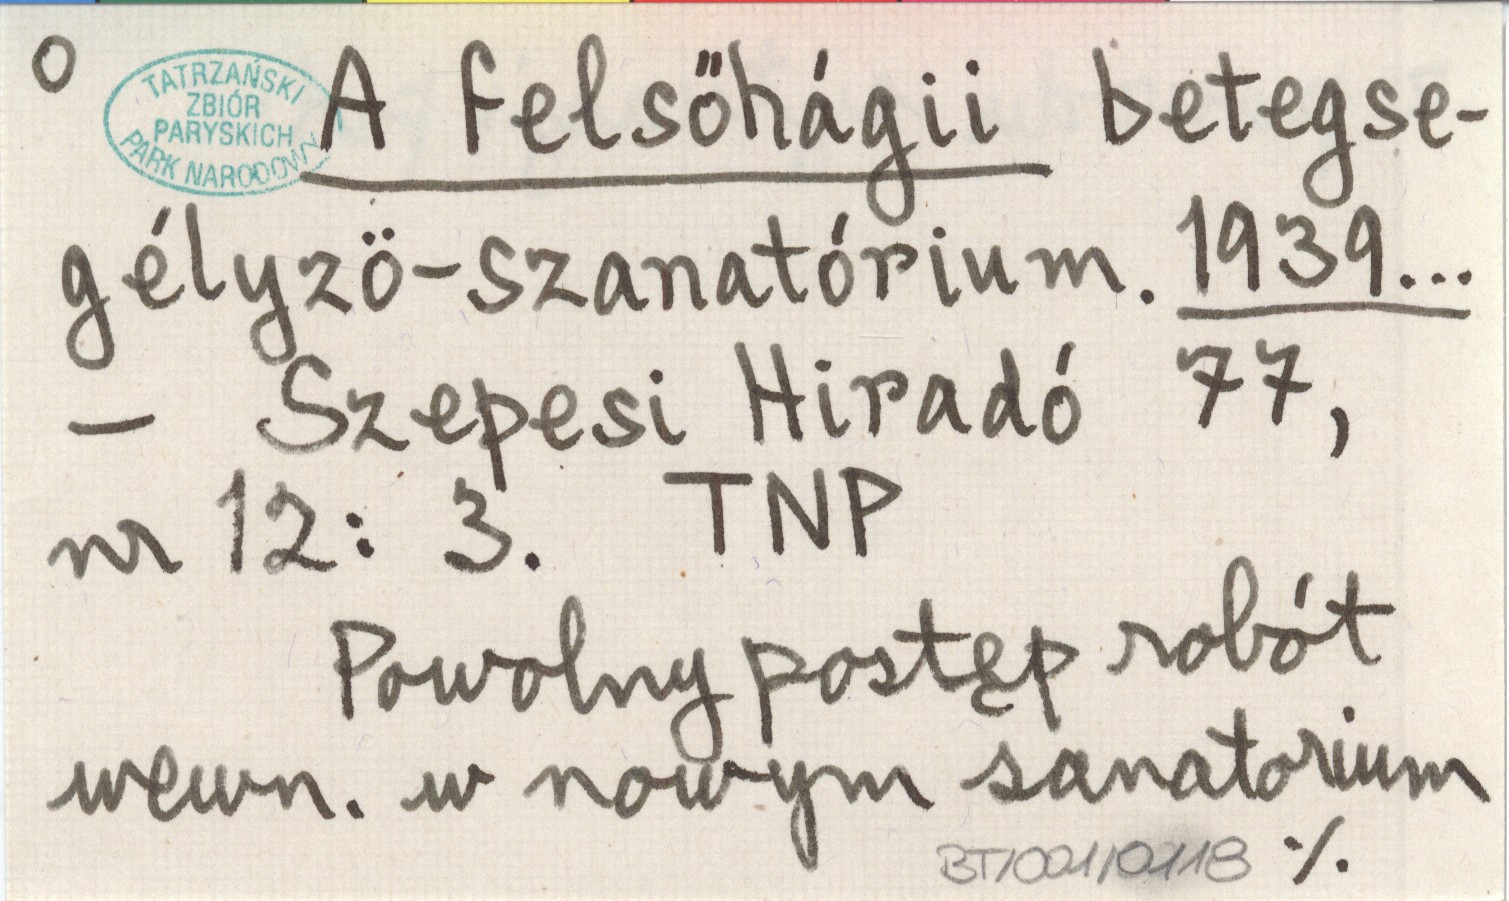 O
TATRZAŃSKI
ZBIÓR
PARYSKICH
PARK NARODOWY
A Felsőhágii betegse-
gélyzö-szanatórium. 1939...
— Szepesi Hiradó 77,
nr 12: 3. TNP
Powolny postęp robót
wewn. w nowym sanatorium
BT/001/0118 ·/.